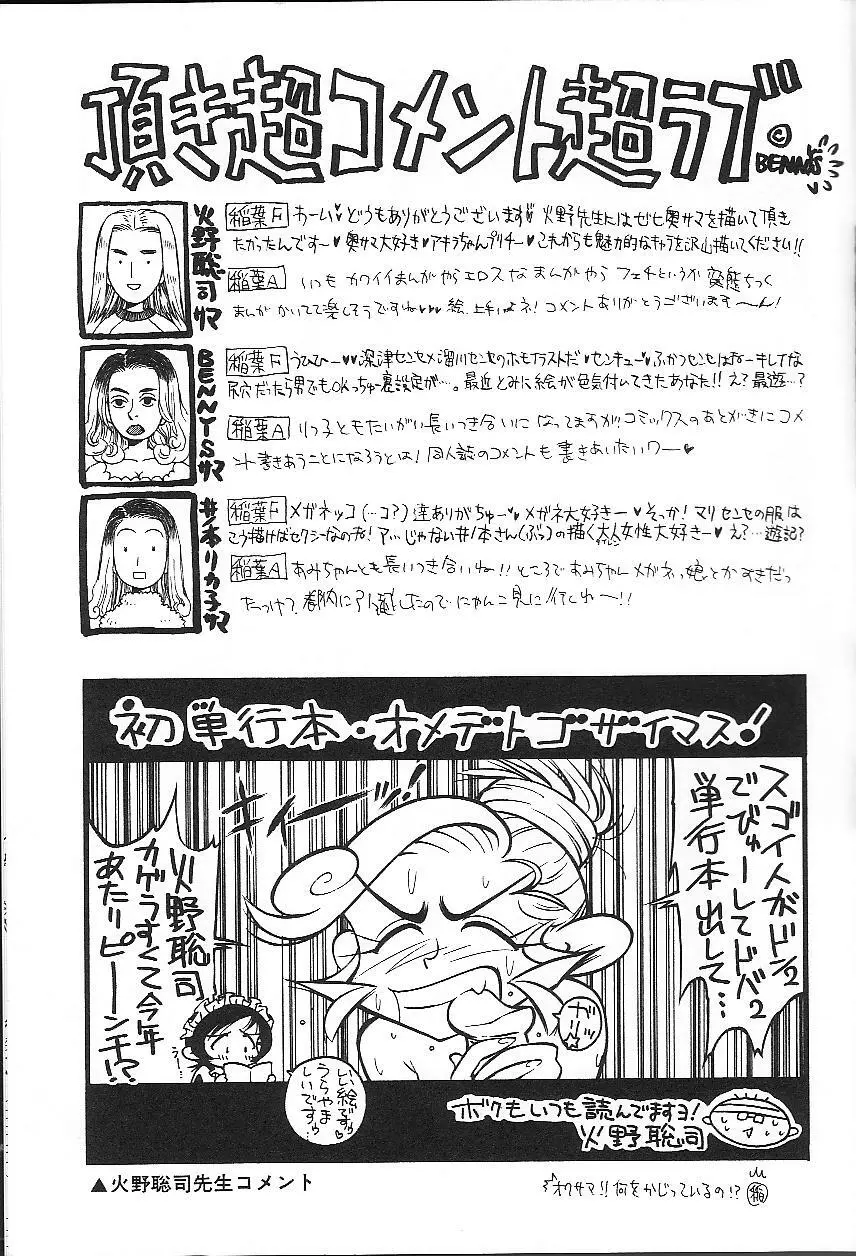 頂き超コメント超ラブ
©BENNYS
火野聡司サマ
稲葉F おーい♥どうもありがとうございます♥火野先生にはぜひ奥サマを描いて頂き
たかったんです〜♥奥サマ大好き♥アキラちゃんプリチー♥これからも魅力的なキャラを沢山描いてください!!
稲葉A いつもカワイイまんがやらエロスなまんがやらフェチというか変態ちっく
まんがかいてて楽しそうですね♥♥♥絵、上手いよネ!コメントありがとうございます〜ん!
BENNY'Sサマ
稲葉F うひひー♥♥深津センセ×溜川センセのホモイラストだ♥センキュー♥ふかつセンセはおーキしてな
尻穴だったら男でもOKっちゅー裏設定が…。最近とみに絵が色気付いてきたあなた!!え?最遊…?
稲葉A りっ子ともたいがい長いつき合いになってますがコミックスのあとがきにコメ
ント書きあうことになろうとは!同人誌のコメントも書きあいたいワー♥
井ノ本リカ子サマ
稲葉F メガネッコ(…コ?)達ありがちゅー♥メガネ大好きー♥そっか!マリセンセの服は
こう描けばセクシーなのね!ア…じゃない井ノ本さん(ぷっ)の描く大人女性大好きー♥え?…遊記?
稲葉A あみちゃんとも長いつき合いね!!ところであみちゃんメガネっ娘とかすきだっ
たっけ?都内に引越したのでにゃんこ見に行くわ〜!!
初単行本・オメデトゴザイマス!
スゴイ人がドンドン
でびゅーしてドバドバ
単行本出して…
キィーッ!
火野聡司
カゲうすくて今年
あたりピーンチ!?
ガリッ
うー…
いい絵ですゥ
うらやま
しいですゥ…
ボクもいつも読んでますヨ!
火野聡司
▲火野聡司先生コメント
オクサマ!!何をかじっているの!? 稲